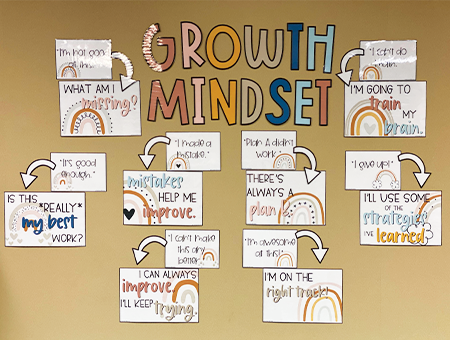 GROWTH
MINDSET
"I'm not good
at this."
WHAT AM I
missing?
"I can't do
I'M GOING TO
train MY
brain.
"I made a
mistake."
mistakes
HELP ME
improve.
"Plan A didn't
work."
THERE'S
ALWAYS A
plan
"It's good
enough."
IS THIS
*REALLY*
my best
WORK?
"I give up!"
I'LL USE SOME
OF THE
strategies
I'VE learned
"I can't make
this any
better."
I CAN ALWAYS
improve.
I'LL KEEP trying.
"I'm awesome
at this!"
I'M ON THE
right track!